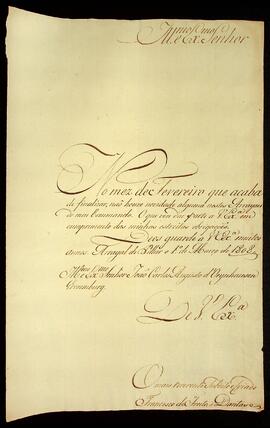 Illmo. e Exmo. Senhor
No mez de Fevereiro que acaba
de finalizar, não houve novidade alguma nestes Arrayaes
do meu Commando. O que
cumprimento das minhas estreitas obrigaçoens.
Deos guarde a V. Exa. muitos
annos. Arrayal de 1º. de Março de 1808.
Illmo. e Exmo. Senhor João Carlos Augusto d'Oeynhausen
Gravenburg.
De V. Exa.
O mais reverente Subdito e Criado
Francisco de Freitas Dantas